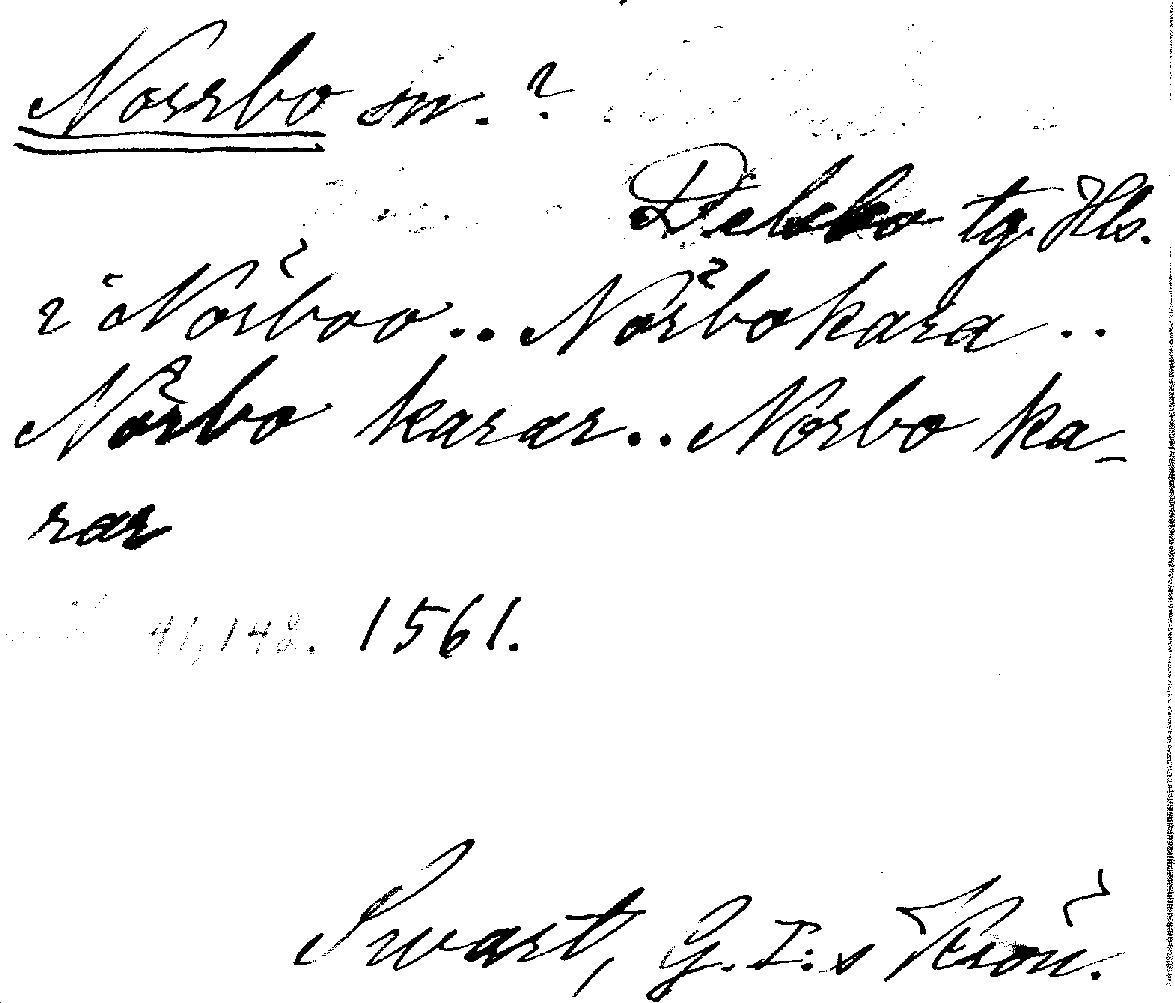 Norrbo sn. ?
Delsbo tg. Hls.
i Norboo .. Norbokara ..
Norbo karar .. Norbo ka-
rar
91,142. 1561.
Swart, G. I:s Krön.